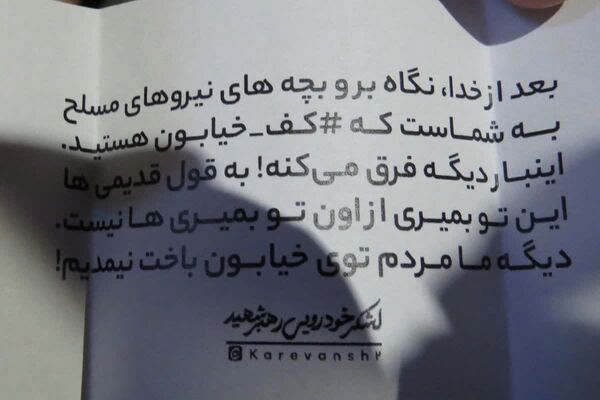 بعد از خدا، نگاه برو بچه های نیروهای مسلح
به شماست که #کف_خیابون هستید.
اینبار دیگه فرق می‌کنه! به قول قدیمی ها
این تو بمیری از اون تو بمیری ها نیست.
دیگه ما مردم توی خیابون باخت نیمدیم!
لشکر خودرویی رهبر شهید
@Karevanshr